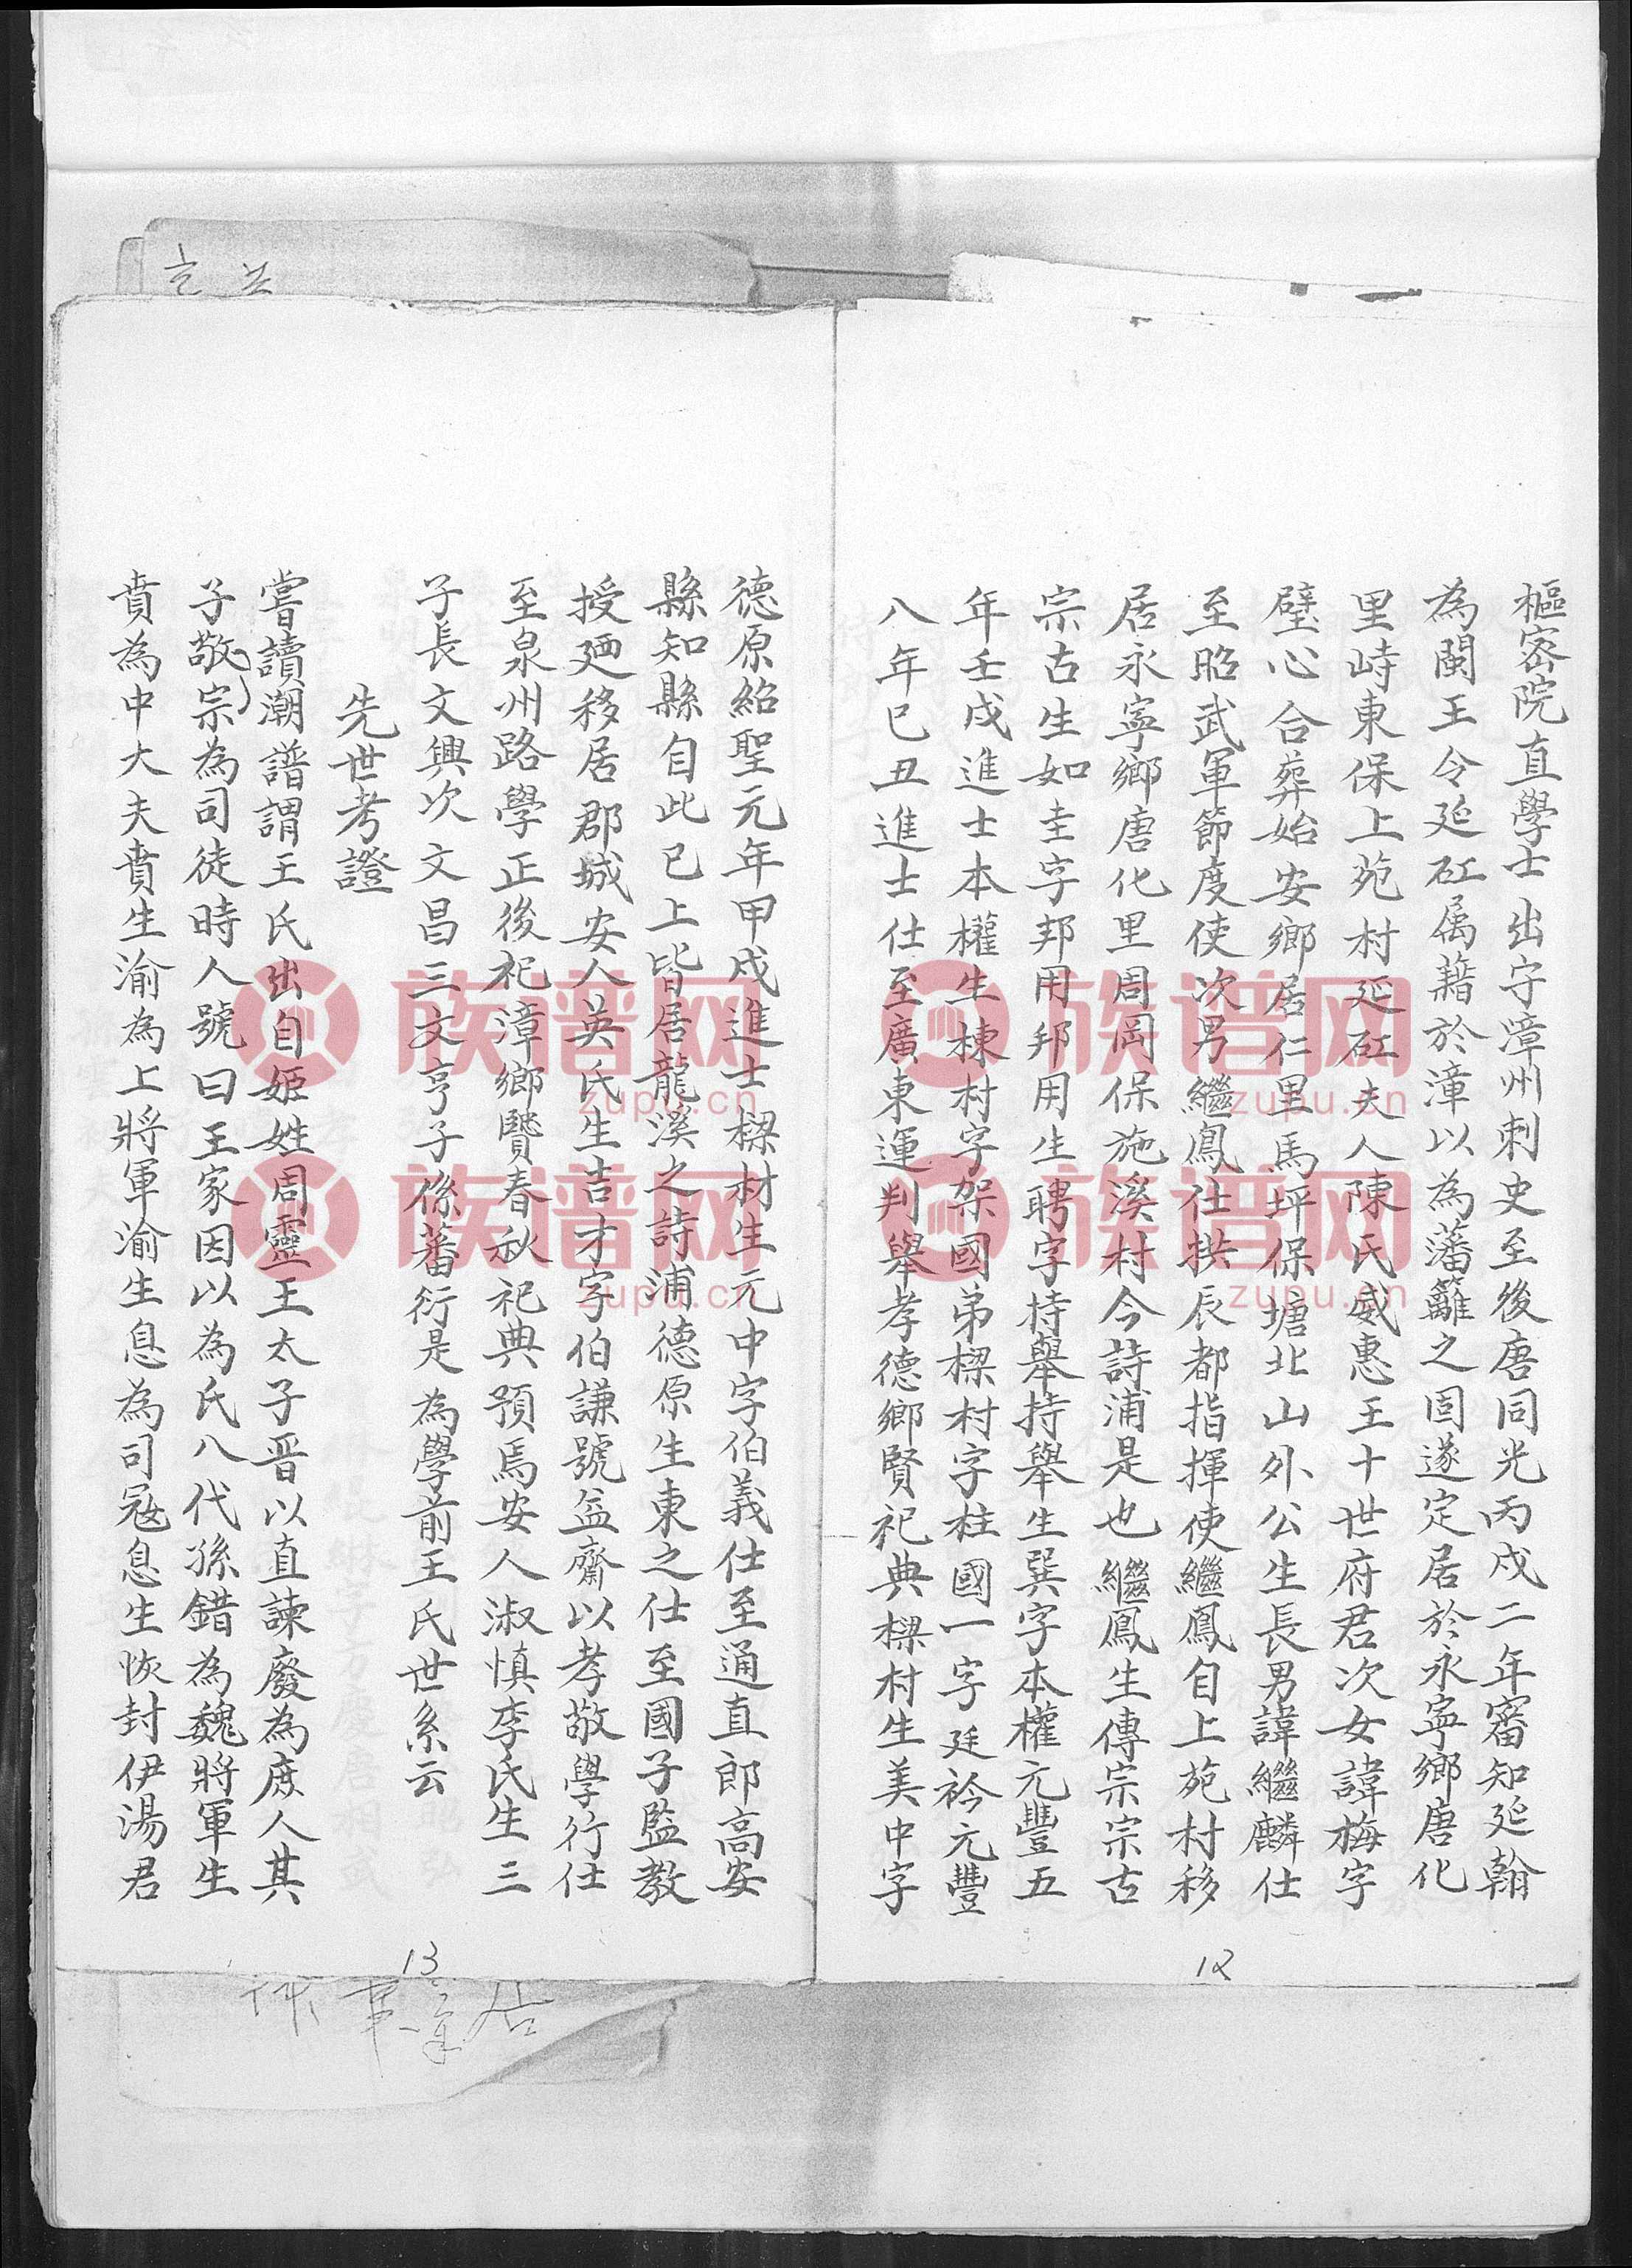 樞密院直學士出守漳州刺史至後唐同光丙戌二年審知延翰
為閩王令延砊属籍於漳以為藩籬之固遂定居於永寧鄉唐化
里峙東保上苑村延砊夫人陳氏威惠王十世府君次女諱梅字
壁心合葬始安鄉居仁里馬坪保塘北山外公生長男諱繼麟仕
至昭武軍節度使次男繼鳳仕拱辰都指揮使繼鳳自上苑村移
居永寧鄉唐化里周岡保施溪村今詩浦是也繼鳳生傳宗宗古
宗古生如圭字邦用邦用生聘字持舉持舉生巽字本權元豐五
年壬戌進士本權生棟村字架國弟樑村字柱國一字廷衿元豐
八年巳丑進士仕至廣東運判舉孝德鄉賢祀典樑村生美中字
12
德原紹聖元年甲戌進士樑材生元中字伯義仕至通直郎高安
縣知縣自此已上皆居龍溪之詩浦德原生東之仕至國子監教
授廼移居郡城安人英氏生吉才字伯謙號益齋以孝敬學行仕
至泉州路學正後祀漳鄉賢春秋祀典預焉安人淑慎李氏生三
子長文興次文昌三文亨子係蕃衍是為學前王氏世系云
先世考證
嘗讀潮譜謂王氏出自姬姓周靈王太子晋以直諫廢為庶人其
子敬宗為司徒時人號曰王家因以為氏八代孫錯為魏將軍生
賁為中大夫賁生渝為上將軍渝生息為司寇息生恢封伊湯君
13